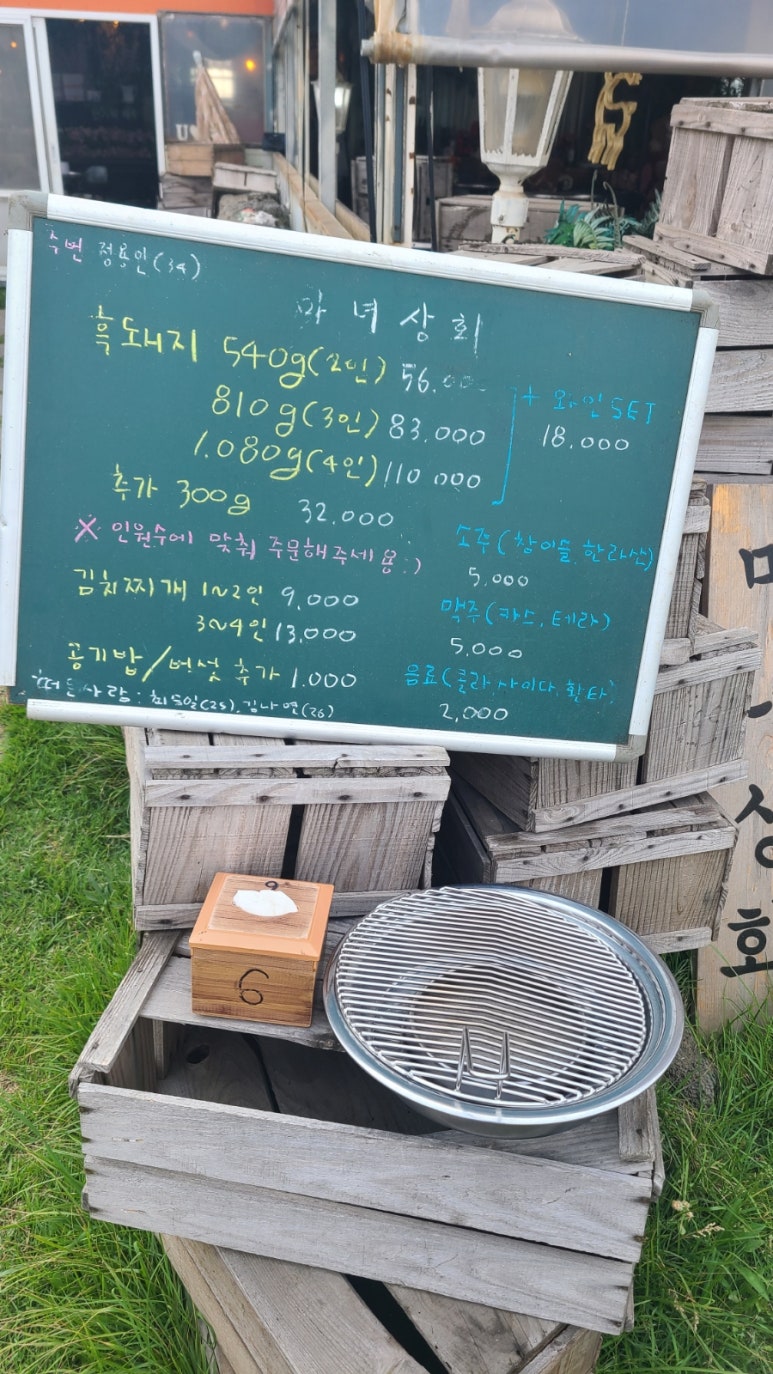 주번 정용인(34)
마녀상회
흑돼지 540g(2인) 56.000
810g(3인) 83.000
1.080g(4인) 110 000
+ 와인SET
18.000
추가 300g 32.000
※ 인원수에 맞춰 주문해주세용:)
김치찌개 1~2인 9,000
3~4인 13,000
공기밥/버섯 추가 1.000
떠든사람: 최두일(25), 김나연(26)
소주(참이슬.한라산)
5,000
맥주(카스.테라)
5,000
음료(콜라.사이다.환타)
2,000
6
상회